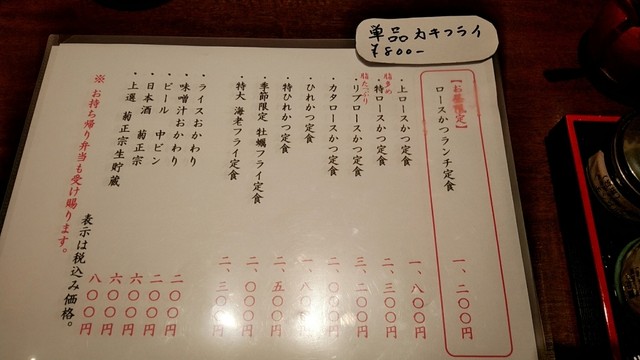 単品 カキフライ
¥800-
【お昼限定】
ロースかつランチ定食 一、二〇〇円
・上ロースかつ定食 一、八〇〇円
脂多め
・特ロースかつ定食 二、三〇〇円
脂たっぷり
・リブロースかつ定食 三、二〇〇円
・カタロースかつ定食 二、〇〇〇円
・ひれかつ定食 一、八〇〇円
・特ひれかつ定食 二、五〇〇円
・季節限定 牡蠣フライ定食 二、〇〇〇円
・特大 海老フライ定食 二、三〇〇円
・ライスおかわり 二〇〇円
・味噌汁おかわり 二〇〇円
・ビール 中ビン 六〇〇円
・日本酒 菊正宗 六〇〇円
・上選 菊正宗生貯蔵 八〇〇円
表示は税込み価格。
※ お持ち帰り弁当も受け賜ります。